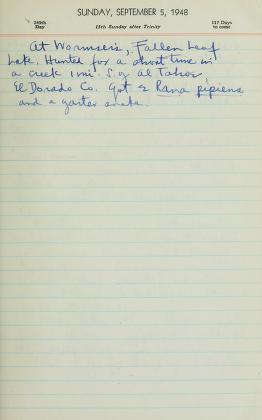 SUNDAY, SEPTEMBER 5, 1948
249th Day
15th Sunday after Trinity
117 Days to come
At Wormser's, Fallen Leaf
Lake. Hunted for a short time in
a creek 1 mi. S. of al Tahoe
El Dorado Co. Got 2 Rana pipiens
and a garter snake.